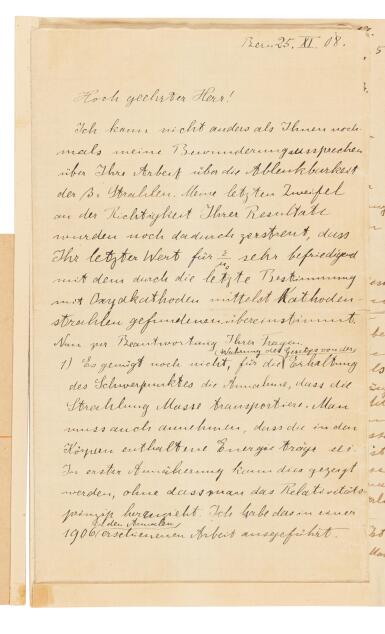 Bern 25. XI. 08.
Hoch geehrter Herr!
Ich kann nicht anders als Ihnen noch-
mals meine Bewunderung aussprechen
über Ihre Arbeit über die Ablenkbarkeit
der β-Strahlen. Meine letzten Zweifel
an der Richtigkeit Ihrer Resultate
wurden noch dadurch zerstreut, dass
Ihr letzter Wert für ε/μ₀ sehr befriedigend
mit dem durch die letzte Bestimmung
mit Oxydkathoden mittelst Kathoden-
strahlen gefundenen übereinstimmt.
Nun zur Beantwortung Ihrer Fragen.
(Wahrung des Gesetzes von der
1) Es genügt noch nicht, für die Erhaltung
des Schwerpunktes die Annahme, dass die
Strahlung Masse transportiere. Man
muss auch annehmen, dass die in den
Körpern enthaltene Energie träge sei.
In erster Annäherung kann dies gezeigt
werden, ohne dass man das Relativitäts-
prinzip heranzieht. Ich habe das in einer
in den Annalen
1906 erschienenen Arbeit ausgeführt.